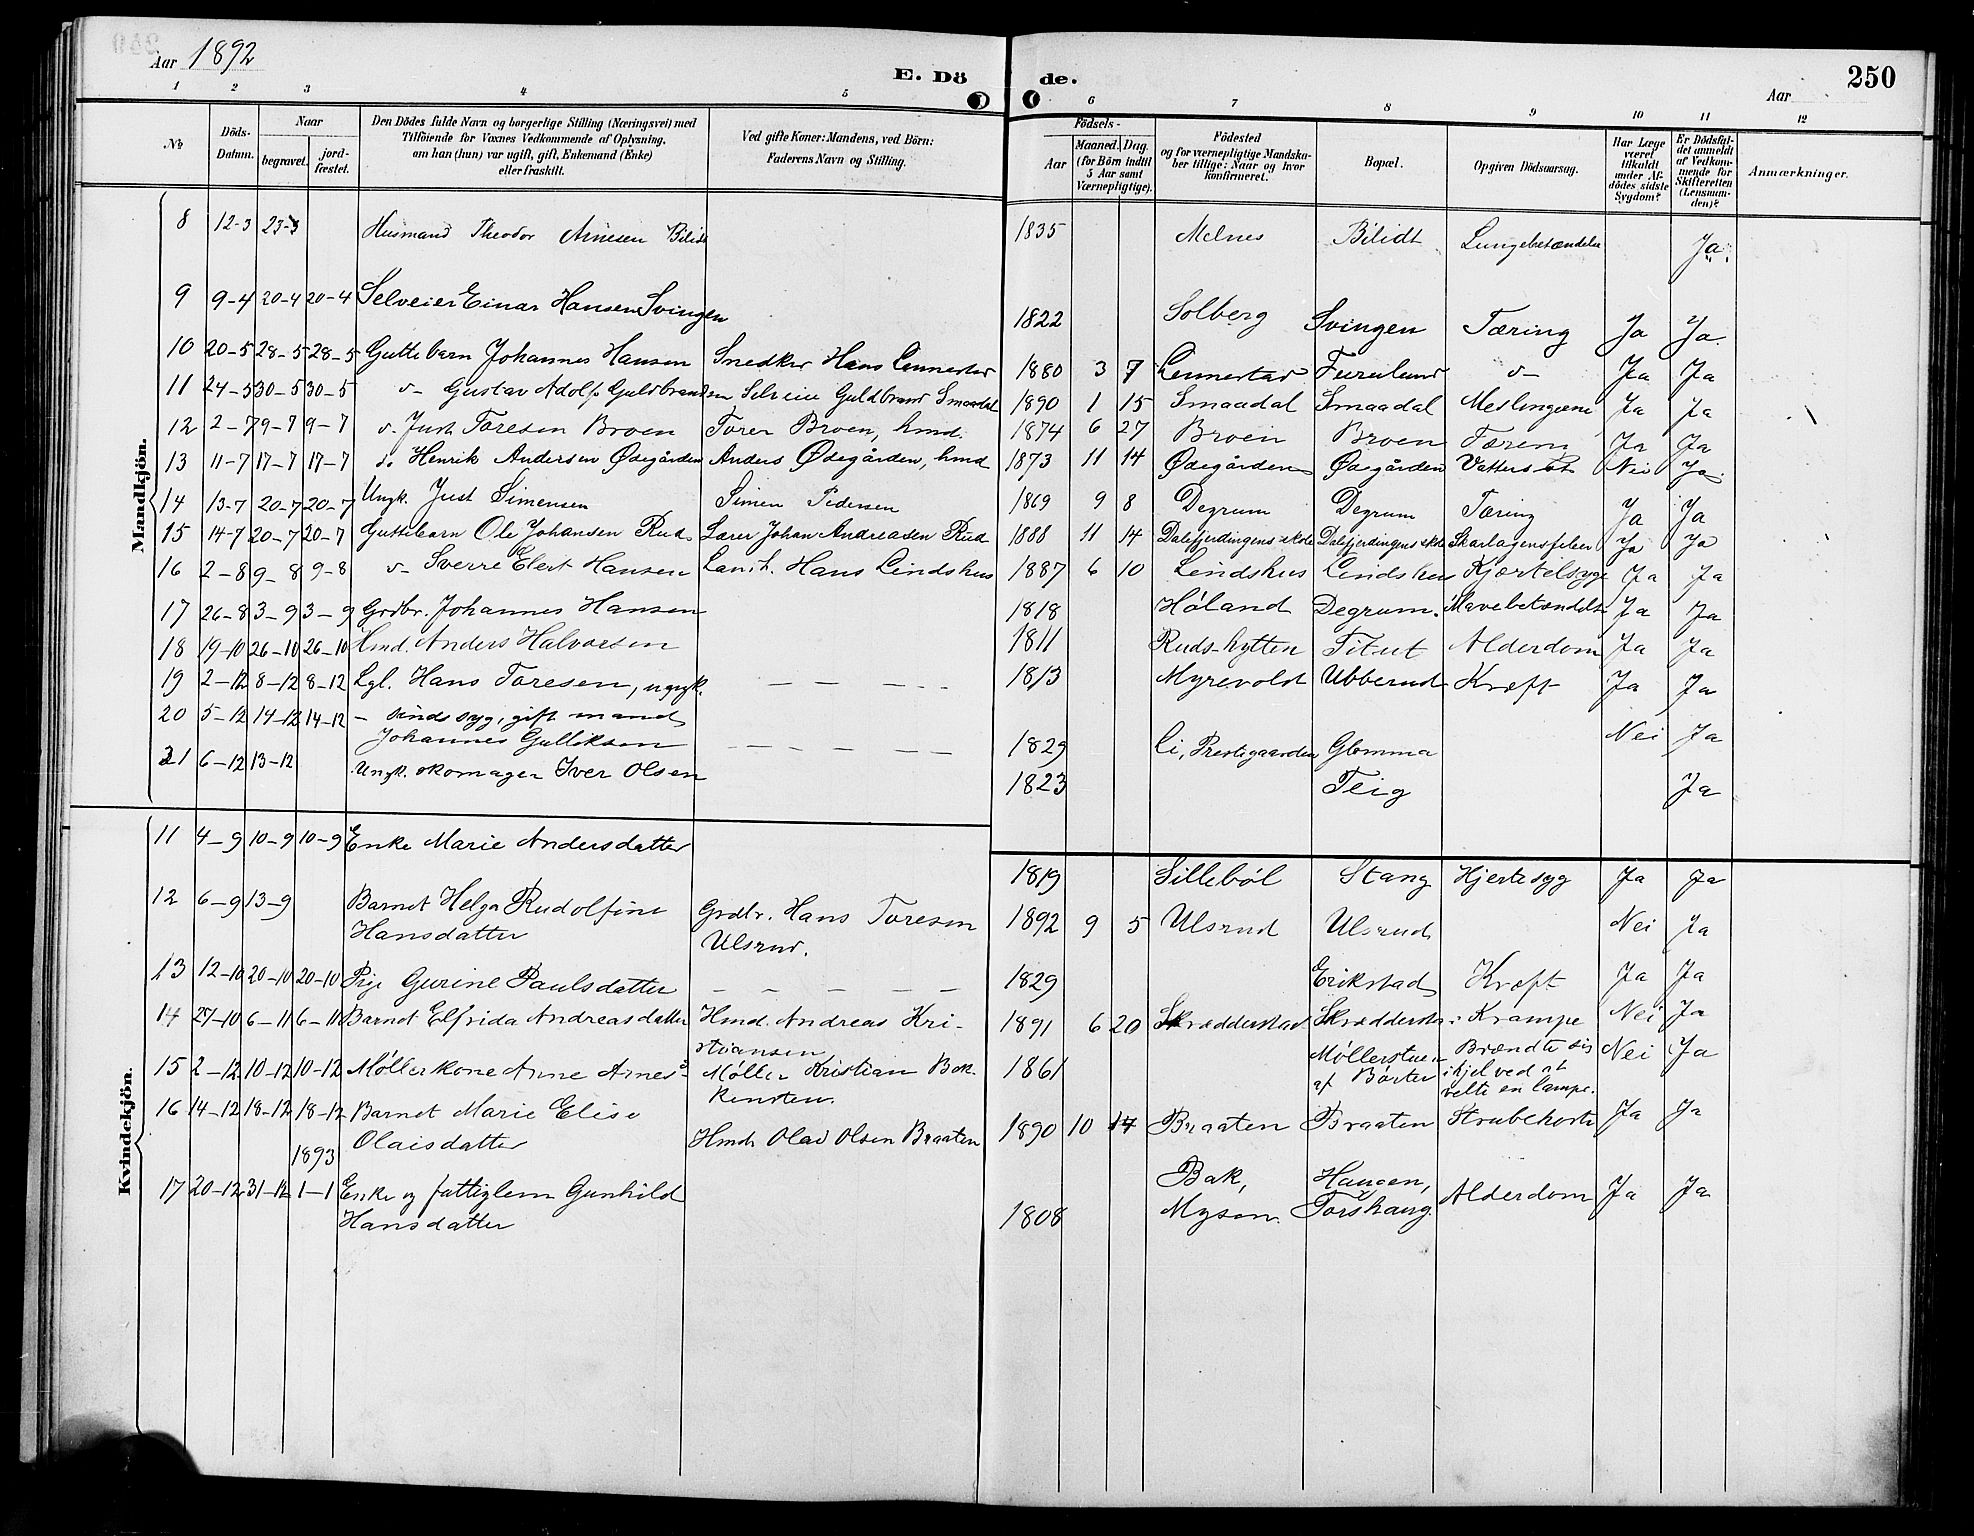 Aar 1892
E. Döde.
Aar
250
1 2 3 4 5 6 7 8 9 10 11 12
No
Döds-Datum.
Naar
begravet.
jord-fæstet.
Den Dödes fulde Navn og borgerlige Stilling (Næringsvei) med
Tilföiende for Voxnes Vedkommende af Oplysning,
om han (hun) var ugift, gift, Enkemand (Enke)
eller fraskilt.
Ved gifte Koner: Mandens, ved Börn:
Faderens Navn og Stilling.
Födsels-
Aar
Maaned. Dag.
(for Börn indtil
5 Aar samt
Værnepligtige).
Födested
og for værnepligtige Mandska-
ber tillige: Naar og hvor
konfirmeret.
Bopæl.
Opgiven Dödsaarsag.
Har Læge
været
tilkaldt
under Af-
dödes sidste
Sygdom?
Er Dödsfal-
det anmeldt
af Vedkom-
mende for
Skifteretten
(Lensman-
den)?
Anmærkninger.
Mandkjön.
8 12-3 23-3 Husmand Theodor Arnesen Bilidt 1835 Melnes Bilidt Lungebetændelse Ja
9 9-4 20-4 20-4 Selveier Einar Hansen Svingen 1822 Solberg Svingen Tæring Ja Ja
10 20-5 28-5 28-5 Guttebarn Johannes Hansen Snedker Hans Lennertad 1880 3 7 Lennertad Furulund v- Ja Ja
11 24-5 30-5 30-5 v- Gustav Adolf Guldbrandsen Selveier Guldbrand Smaadal 1890 1 15 Smaadal Smaadal Meslingerne Ja Ja
12 2-7 9-7 9-7 v. Just Toresen Broen Torer Broen, hmd. 1874 6 27 Broen Broen Ja Ja
13 11-7 17-7 17-7 do Henrik Andersen Ødegården Anders Ødegården, hmd 1873 11 14 Ødegården Ødegården Vattersot Nei Ja
14 13-7 20-7 20-7 Ungk. Just Simensen Simen Pedersen 1869 9 8 Degrum Degrum Tæring Ja Ja
15 14-7 20-7 20-7 Guttebarn Ole Johansen Rud. Lærer Johan Andreasen Rud 1888 11 14 Dalefjerdingens skole Dalefjerdingens skole Skarlagensfeber Ja Ja
16 2-8 9-8 9-8 v- Sverre Elert Hansen Lanh. Hans Lindshus 1887 6 10 Lindshus Lindshus Kjærtelsyge Ja Ja
17 26-8 3-9 3-9 Grdbr. Johannes Hansen 1818 Høland Degrum. Mavebetændelse Ja Ja
18 19-10 26-10 26-10 Hmd. Anders Halvorsen 1811 Ruds-hytten Titut Alderdom Ja Ja
19 2-12 8-12 8-12 Lgl. Hans Toresen, ungk. — — — 1813 Myrevold Ubberud Kræft Ja Ja
20 5-12 14-12 14-12 - sindssyg, gift mand
Johannes Gulliksen — — — — — 1829 Li, Prestegaarden, Glomma Nei Ja
21 6-12 13-12 Ungk. skomager Iver Olsen 1823 Teig Ja
Kvindekjön.
11 4-9 10-9 10-9 Enke Marie Andersdatter 1819 Sillebøl Stang Hjertesyg Ja Ja
12 6-9 13-9 Barnet Helga Rudolfine Grdbr. Hans Toresen 1892 9 5 Ulsrud Ulsrud Nei Ja
Hansdatter Ulsrud.
13 12-10 20-10 20-10 Pige Gurine Paulsdatter — — — — — 1829 Erikstad Kræft Ja Ja
14 27-10 6-11 6-11 Barnet Elfrida Andreasdatter Hmd. Andreas Kri- 1891 6 20 Skrædderstad Skrædderstad Krampe Nei Ja
stiansen
15 2-12 10-12 10-12 Møllerkone Anne Arnesd Møller Kristian Bak- 1861 Møllerstuen Brændte sig Nei Ja
kensten. af Børter ihjel ved at
velte en lampe.
16 14-12 18-12 18-12 Barnet Marie Elise
Olaisdatter Hmd. Olad Olsen Braaten 1890 10 17 Braaten Braaten Strubehoste Ja Ja
1893
17 20-12 31-12 1-1 Enke og fattiglem Gunhild Bak, Haugen,
Hansdatter 1808 Mysen. Torshaug. Alderdom Ja Ja